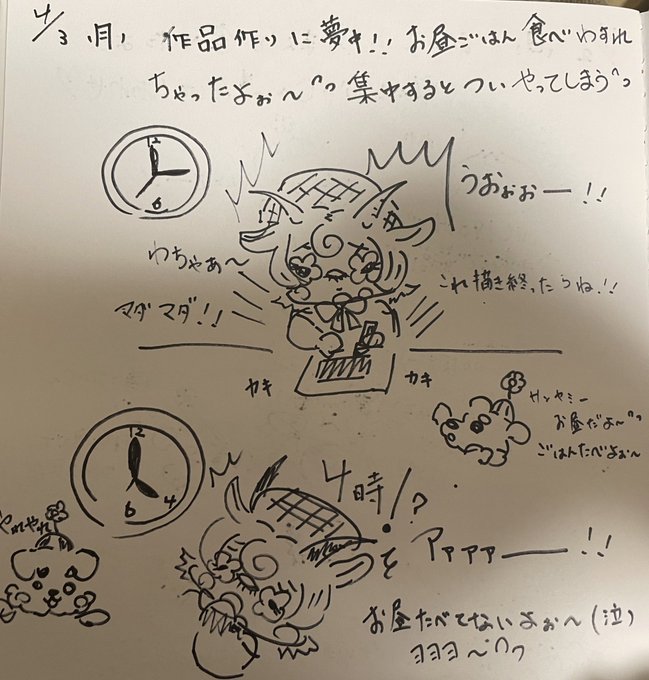 4/3 (月) 作品作りに夢中!! お昼ごはん食べわすれ
ちゃったよぉ〜 集中するとついやってしまう
12
6
うおぉぉー!!
わちゃあ〜
これ描き終ったらね!!
マダマダ!!
カキ カキ
サンヤミー
お昼だよ〜
ごはんたべよぉ〜
12
4
6
やれやれ
4時!?
アァァァー!!
お昼たべてないよぉ〜(泣)
ヨヨヨ〜